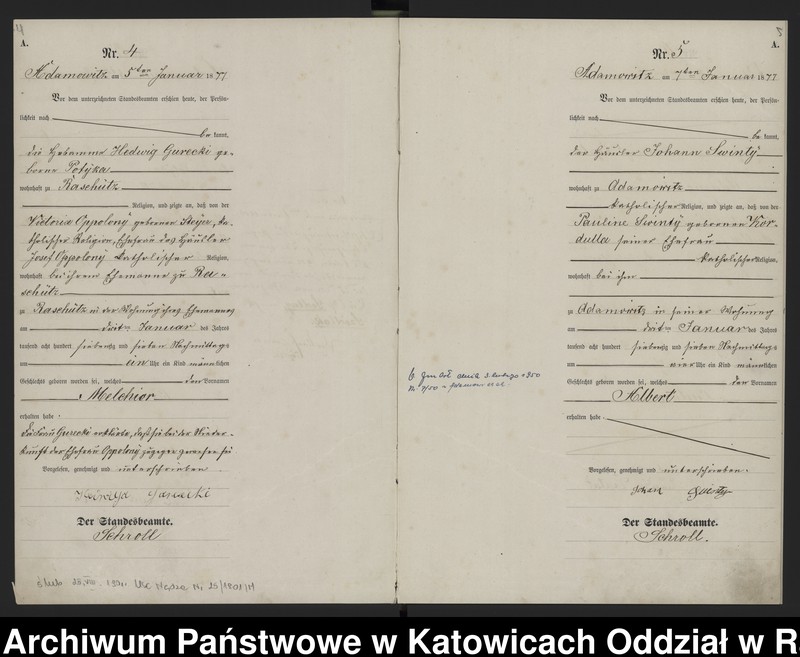 A.
Nr. 4
Adamowitz am 5ten Januar 1877
Vor dem unterzeichneten Standesbeamten erschien heute, der Persön-
lichkeit nach
be kannt,
die Hebamme Hedwig Gurecki ge-
borne Potyka
wohnhaft zu Raschütz
Religion, und zeigte an, daß von der
Victoria Oppolony geborenen
tholischer Religion, Ehefrau des Häusler
Josef Oppolony katholischer Religion,
wohnhaft bei ihrem Ehemanne zu Ra-
schütz
zu Raschütz in der Wohnung ihres Ehemannes
am Januar des Jahres
tausend acht hundert siebenzig und sieben Nachmittags
um ein Uhr ein Kind männlichen
Geschlechts geboren worden sei, welches den Vornamen
Melchior
erhalten habe.
Die Frau Gurecki erklärte, daß sie bei der Nieder-
kunft der Ehefrau Oppolony zugegen gewesen sei
Vorgelesen, genehmigt und unterschrieben
Gurecki
Der Standesbeamte.
Schroll
A.
Nr. 5
Adamowitz am 7ten Januar 1877
Vor dem unterzeichneten Standesbeamten erschien heute, der Persön-
lichkeit nach
be kannt,
der Häusler Johann Swinty
wohnhaft zu Adamowitz
katholischer Religion, und zeigte an, daß von der
Pauline Swinty geborenen Kor-
dulla seiner Ehefrau
katholischer Religion,
wohnhaft bei ihm
zu Adamowitz in seiner Wohnung
am Januar des Jahres
tausend acht hundert siebenzig und sieben Nachmittags
um Uhr ein Kind männlichen
Geschlechts geboren worden sei, welches den Vornamen
Albert
erhalten habe.
Vorgelesen, genehmigt und unterschrieben.
Der Standesbeamte.
Schroll.
Archiwum Państwowe w Katowicach Oddział w R